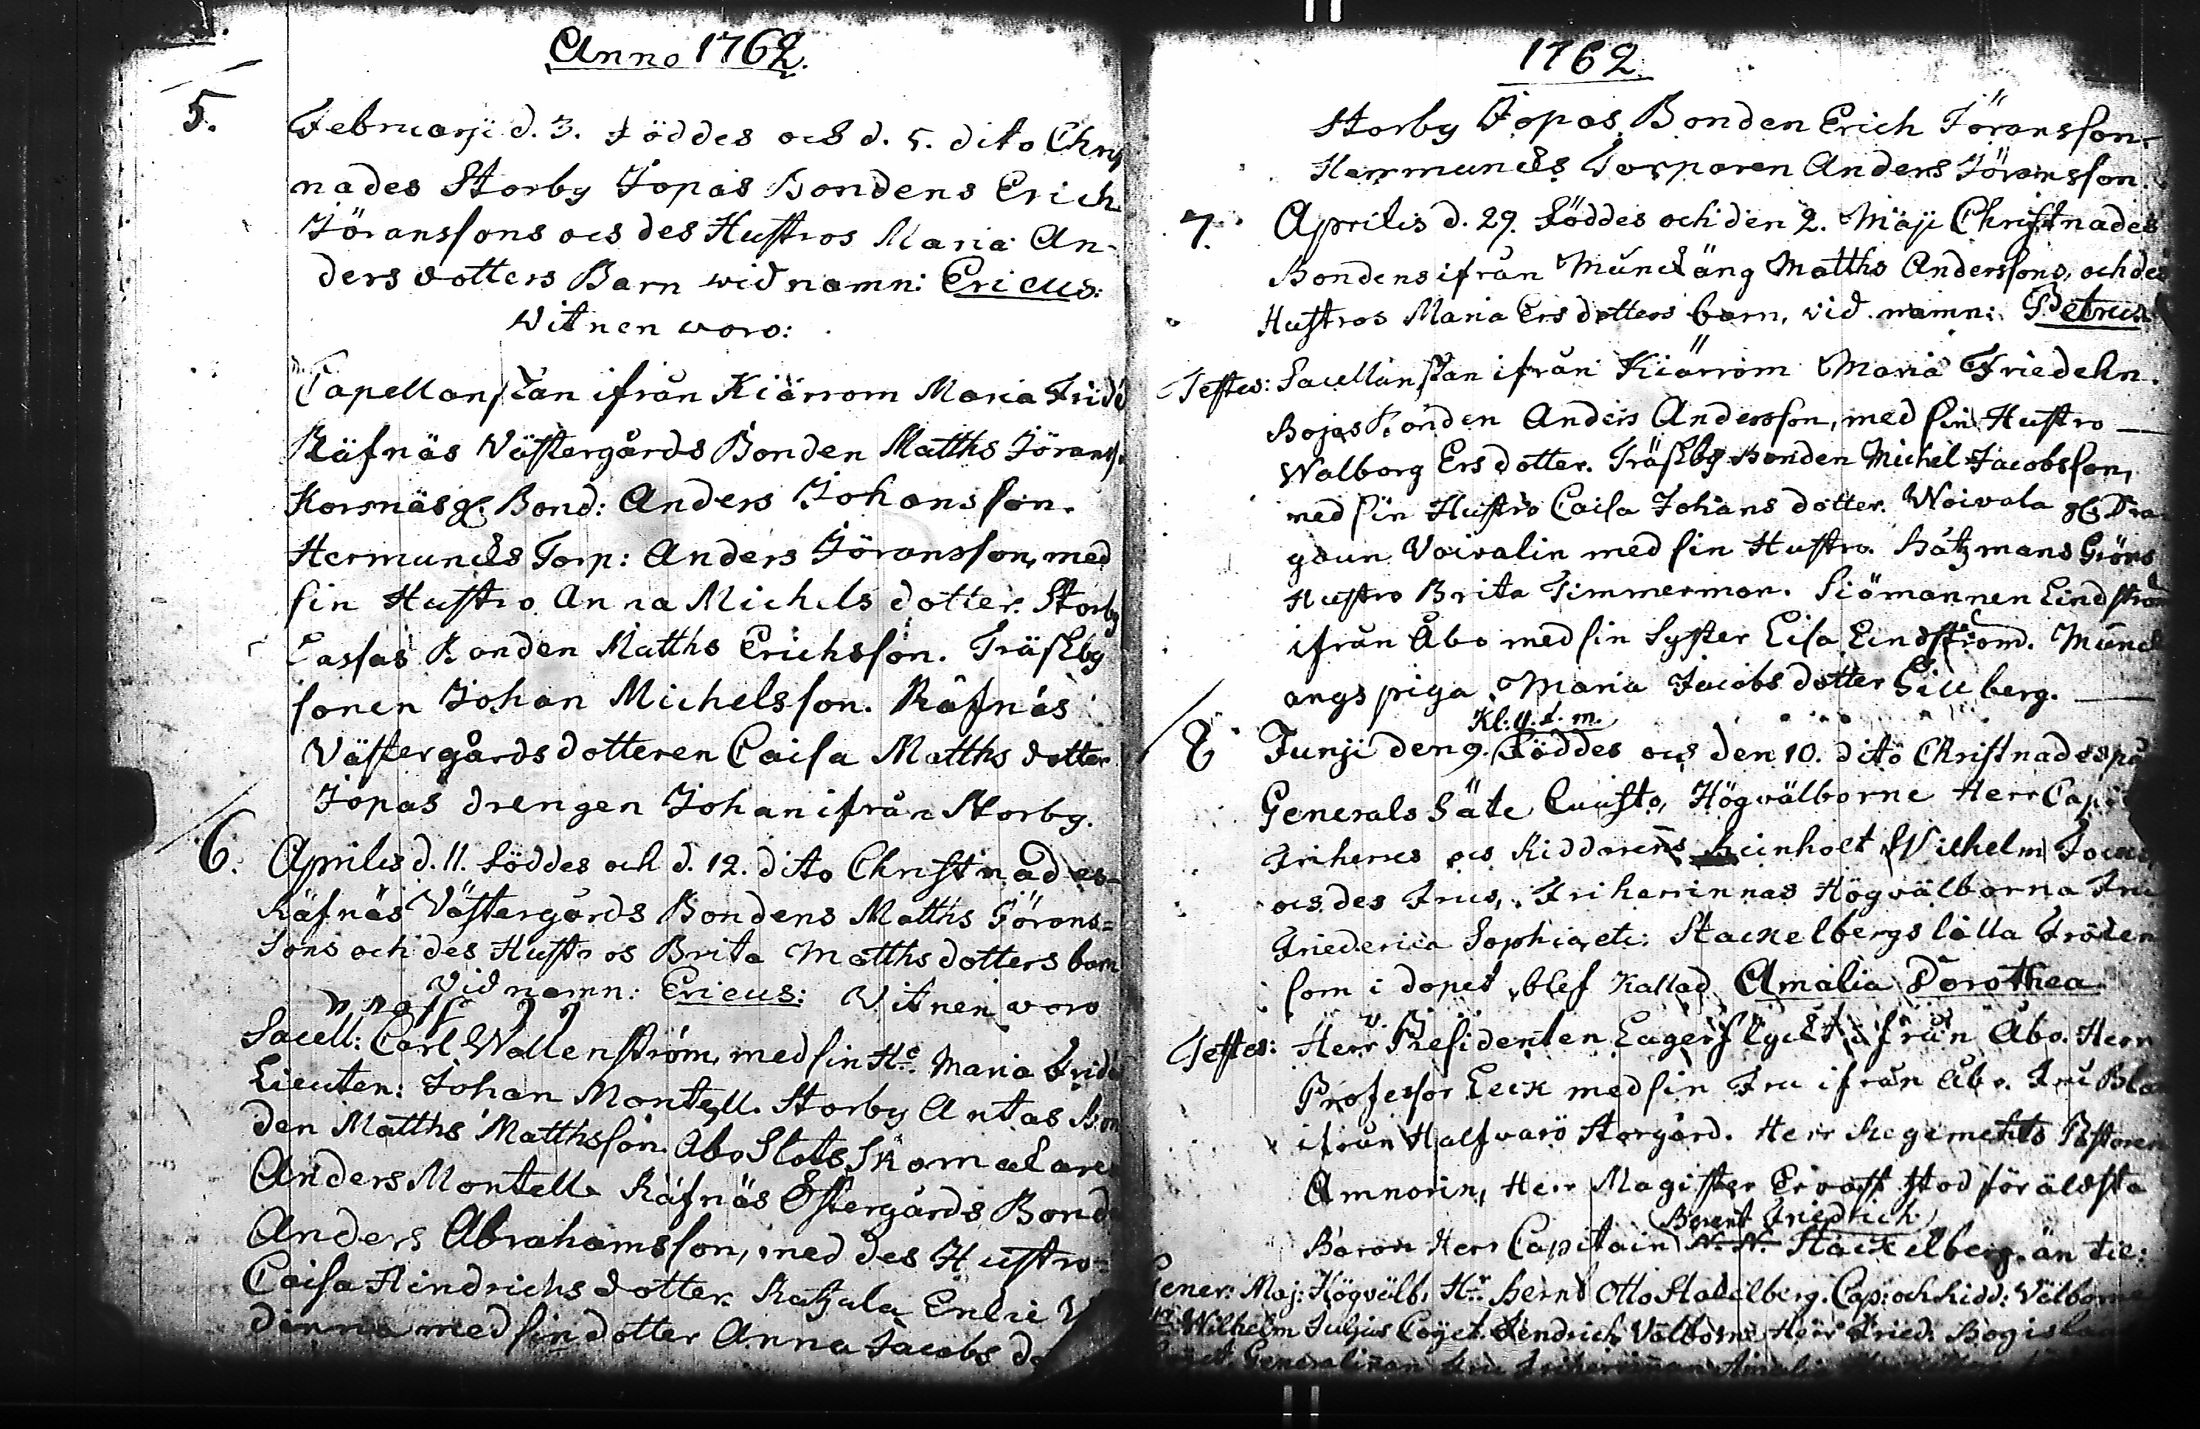 Anno 1762.
5.
Februarji d. 3. Föddes och d. 5. dito Chri
nades Storby Jopas Bondens Erich
Jöranssons och des Hustros Maria An-
ders dotters Barn wid namn: Ericus:
Witnen woro:
Capellanskan ifrån Kiärrom Maria Frid
Räfnäs Västergårds Bonden Matths Jörans
Korsnäs g. Bond: Anders Johansson.
Hermuncks Torp: Anders Jöransson, med
sin Hustro Anna Michels dotter. Storby
Lassas Bonden Matths Erichsson. Träskby
sonen Johan Michelsson. Räfnäs
Västergårds dotteren Caisa Matths dotter
Jopas drengen Johan ifrån Storby.
6. Aprilis d. 11. föddes och d. 12. dito Christnades
Räfnäs Västergårds Bondens Matths Görans=
sons och des Hustros Brita Matths dotters barn
vid namn: Ericus: Witnen woro
Sacell: Carl Wallenström, med sin H. Maria Frid
Lieuten: Johan Montell. Storby Antas Bon
den Matths Matthsson. Åbo Slots Skomakare
Anders Montell. Räfnäs Östergårds Bond
Anders Abrahamsson, med des Hustro=
Caisa Hindrichs dotter. Katzala Enkie
dinna med sin dotter Anna Jacobs do
1762.
Storby Jopas Bonden Erich Jöransson.
Hermuncks Torparen Anders Jöransson.
7. Aprilis d. 29. föddes och den 2. Maji Christnades
Bondens ifrån Munckäng Matths Anderssons, och des
Hustros Maria Ers dotters barn, vid namn: Petrus
Testes: Sacellanskan ifrån Kiärrom Maria Friedelin.
Bojas Bonden Anders Andersson, med sin Hustro
Walborg Ers dotter. Träskby Bonden Michel Jacobsson,
med sin Hustro Caisa Johans dotter. Woivala g. Dra
goun Voivalin med sin Hustro. Båtzmans Gröns
Hustro Brita Timmerman. Siömannen Lindström
ifrån Åbo med sin Syster Lisa Lindström. Munck
ängs piga Maria Jacobs dotter Gilberg.
Kl: 4. f. m.
8 Junji den 9. Föddes och den 10. dito Christnades på
Generals Säte Cuusto, Högvälborne Herr Capit
Friherres och Riddarens Reinholt Wilhelm
och des Frus, Friherrinnas Högvälborna Fru
Friederica Sophia, etc: Stackelbergs lilla Fröken
som i dopet blef kallad Amalia Dorothea
Testes: Herr Presidenten Lagerflyckt ifrån Åbo. Herr
Professor Leck med sin Fru ifrån Åbo. Fru
ifrån Halfvarö Storgård. Herr Regements Pastoren
Amnorin, Herr Magister stod för äldsta
Berent Friedrich
Baron Herr Capitain N. N. Stackelberg. än til:
Gener: Maj: Högvälb. Hr. Bernt Otto Stakelberg. Cap: och Ridd: Välborne
Wilhelm Juljus Coyet. Fendrich Välborne Herr Fried. Bogislaus
Generalinnan Fru Friherrinnan Amalia